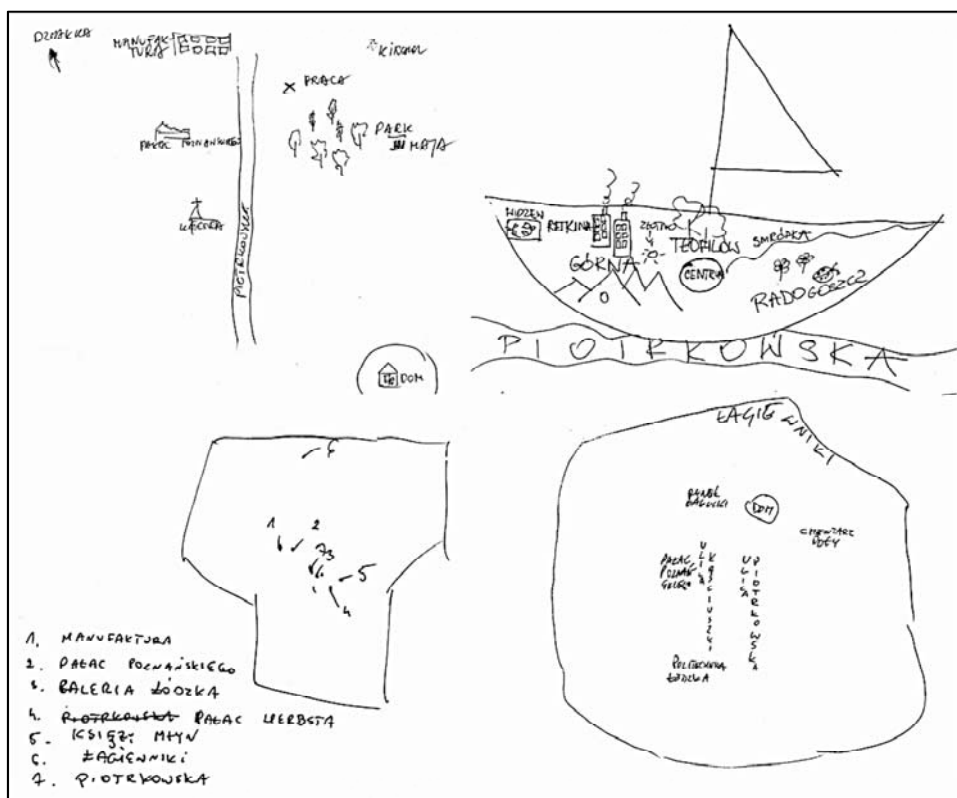 DZIAŁKA
MANUFAK
TURA
KINO
PRACA
PARK
MAJA
PAŁAC POZNAŃSKIEGO
PIOTRKOWSKA
DOM
WIDZEW
RETKINA
ZŁOTNO
TEOFILÓW
SMRÓDKA
GÓRNA
CENTRUM
RADOGOSZCZ
PIOTRKOWSKA
6
1
2
7
3
5
4
1. MANUFAKTURA
2. PAŁAC POZNAŃSKIEGO
3. GALERIA ŁÓDZKA
4. PIOTRKOWSKA PAŁAC HERBSTA
5. KSIĘŻY MŁYN
6. ŁAGIEWNIKI
7. PIOTRKOWSKA
ŁAGIEWNIKI
RYNEK
BAŁUCKI
DOM
CMENTARZ
DOŁY
PAŁAC
POZNAŃ
SKIEGO
ULICA
KOŚCIUSZKI
ULICA
PIOTRKOWSKA
POLITECHNIKA
ŁÓDZKA